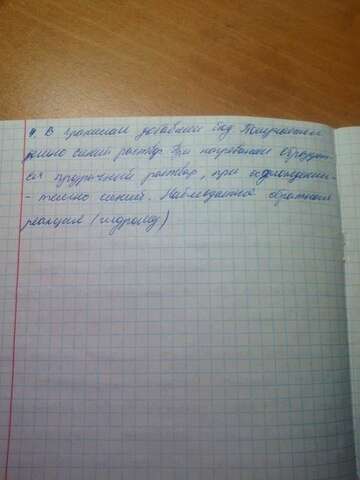 4. В крахмал добавили йод. Получился
темно синий раствор. При нагревании образует-
ся прозрачный раствор, при охлаждении-
- темно синий. Наблюдается обратная
реакция (гидролиз)